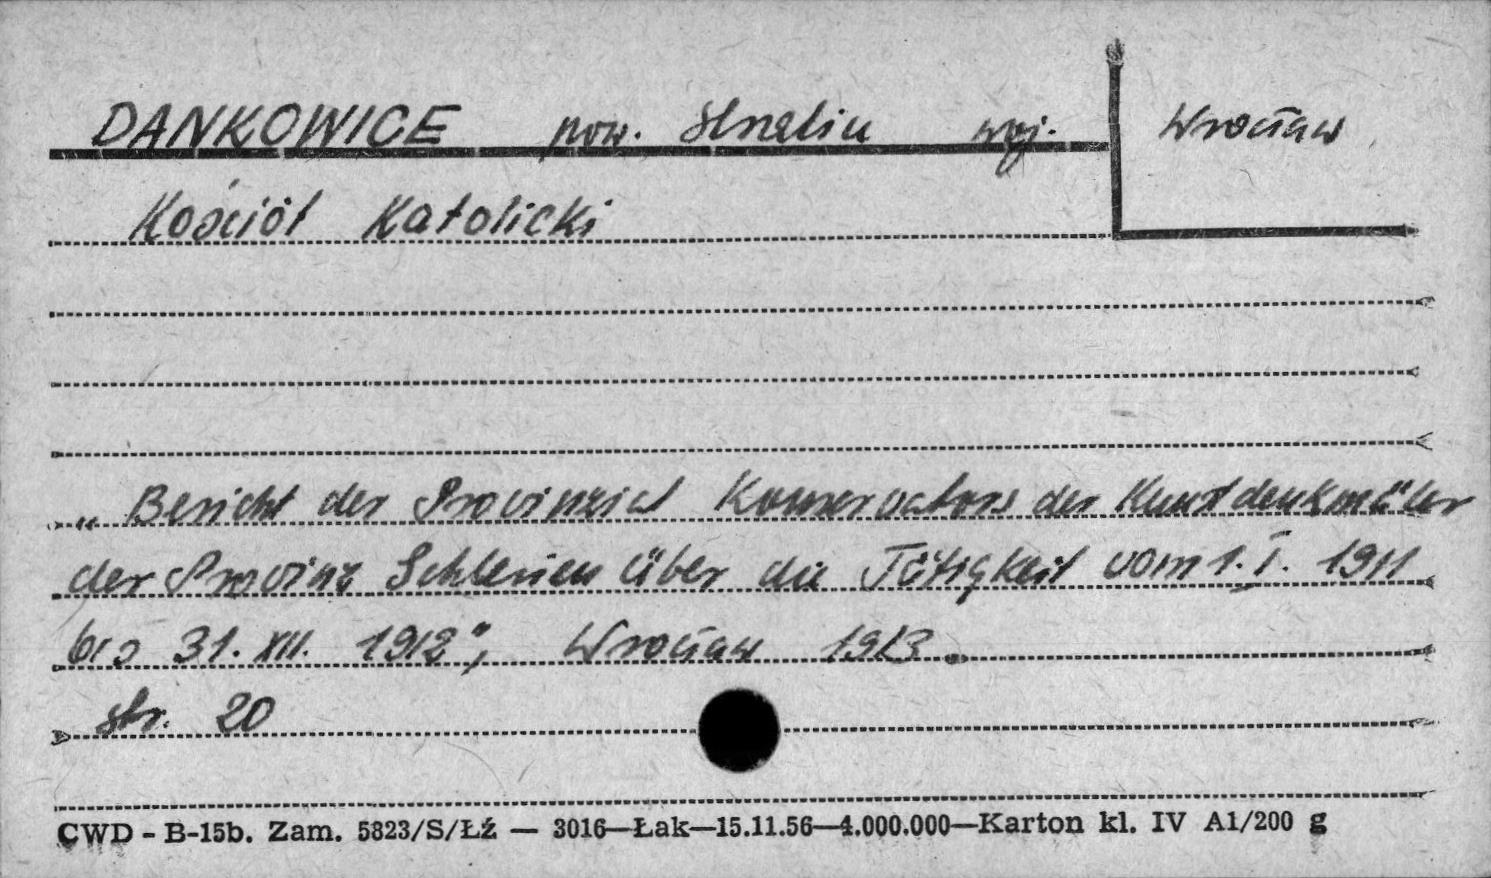 DANKOWICE pow. Strzelin woj. Wrocław
Kościół Katolicki
„Bericht der Provinzial Konservators der Kunstdenkmäler
der Provinz Schlesien über die Tätigkeit vom 1. I. 1911
bis 31. XII. 1912", Wrocław 1913.
str. 20
CWD - B-15b. Zam. 5823/S/Łź — 3016—Łak—15.11.56—4.000.000—Karton kl. IV A1/200 g